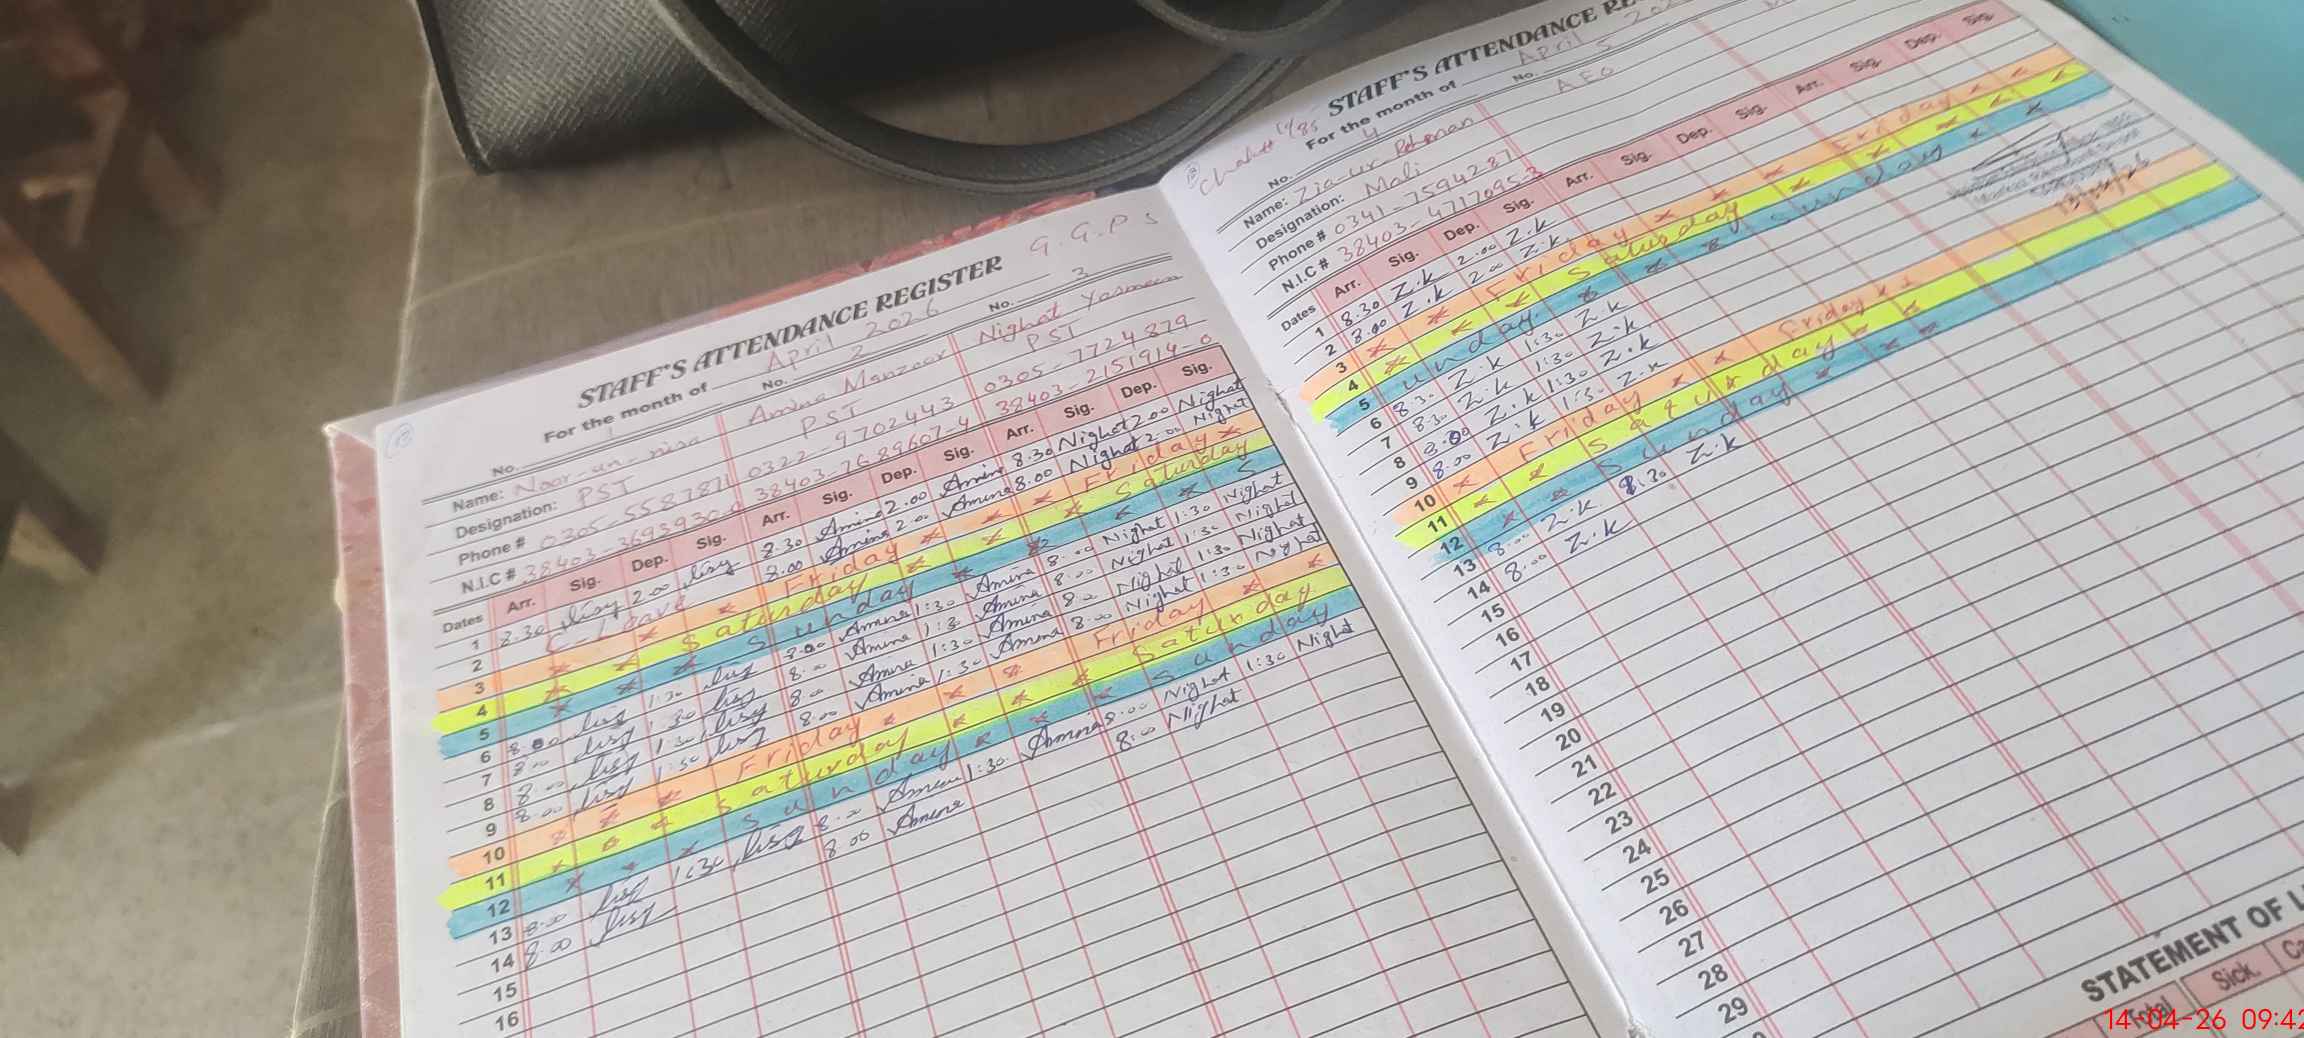 G.G.P S
STAFF'S ATTENDANCE REGISTER
For the month of April 2026
No. 1 2 No. 3
Name: Noor-un-nisa Amina Manzoor Nighat Yasmeen
Designation: PST PST PST
Phone # 0305-5587871 0322-9702443 0305-7724879
N.I.C # 38403-3693930-0 38403-7689607-4 38403-2151914-0
Dates Arr. Sig. Dep. Sig. Arr. Sig. Dep. Sig. Arr. Sig. Dep. Sig.
1 8.30 2.00 8.30 Amina 2.00 Amina 8.30 Nighat 2.00 Nighat
2 C-Leave 8.00 Amina 2.00 Amina 8.00 Nighat 2.00 Nighat
3 Friday Friday
4 Saturday Saturday
5 Sunday S
6 8.00 1:30 8.00 Amina 1:30 Amina 8.00 Nighat 1:30 Nighat
7 8.00 1:30 8.00 Amina 1:30 Amina 8.00 Nighat 1:30 Nighat
8 8.00 1:30 8.00 Amina 1:30 Amina 8.00 Nighat 1:30 Nighat
9 8.00 1:30 8.00 Amina 1:30 Amina 8.00 Nighat 1:30 Nighat
10 Friday Friday
11 Saturday Saturday
12 Sunday Sunday
13 8.00 1:30 8.00 1:30 Amina 8.00 Nighat 1:30 Nighat
14 8.00 8.00 Amina 8.00 Nighat
15
16
STAFF'S ATTENDANCE
For the month of April
No. 4 No. 5
Name: Zia-ur Rehman AEO
Designation: Mali
Phone # 0341-7594287
N.I.C # 38403-4717095-3
Dates Arr. Sig. Dep. Sig. Arr. Sig. Dep. Sig. Arr. Sig. Dep. Sig.
1 8.30 Z.k 2.00 Z.k
2 8.00 Z.k 2.00 Z.k
3 Friday Friday
4 Saturday
5 Sunday Sunday
6 8.30 Z.k 1:30 Z.k
7 8.30 Z.k 1:30 Z.k
8 8.00 Z.k 1:30 Z.k
9 8.00 Z.k 1:30 Z.k
10 Friday Friday
11 Saturday
12 Sunday
13 8.00 Z.k 1.30 Z.k
14 8.00 Z.k
15
16
17
18
19
20
21
22
23
24
25
26
27
28
29
STATEMENT OF
Total Sick.
14-04-26 09:42